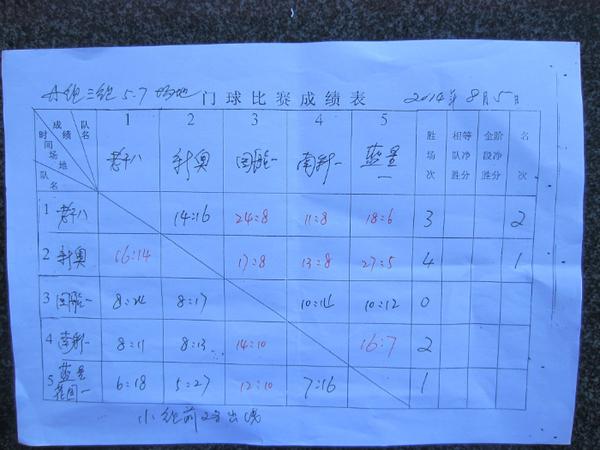 5.7场地 门球比赛成绩表 2014年8月5日
成绩 队名 时间 场地 队名 1 2 3 4 5 胜场次 相等队净胜分 全阶段净胜分 名次
新奥 南新一 蓝景一
1 14:16 24:8 11:8 18:6 3 2
2 新奥 16:14 17:8 13:8 27:5 4 1
3 8:24 8:17 10:14 10:12 0
4 南新一 8:11 8:13 14:10 16:7 2
5 蓝景 6:18 5:27 12:10 7:16 1
小组前2名出线